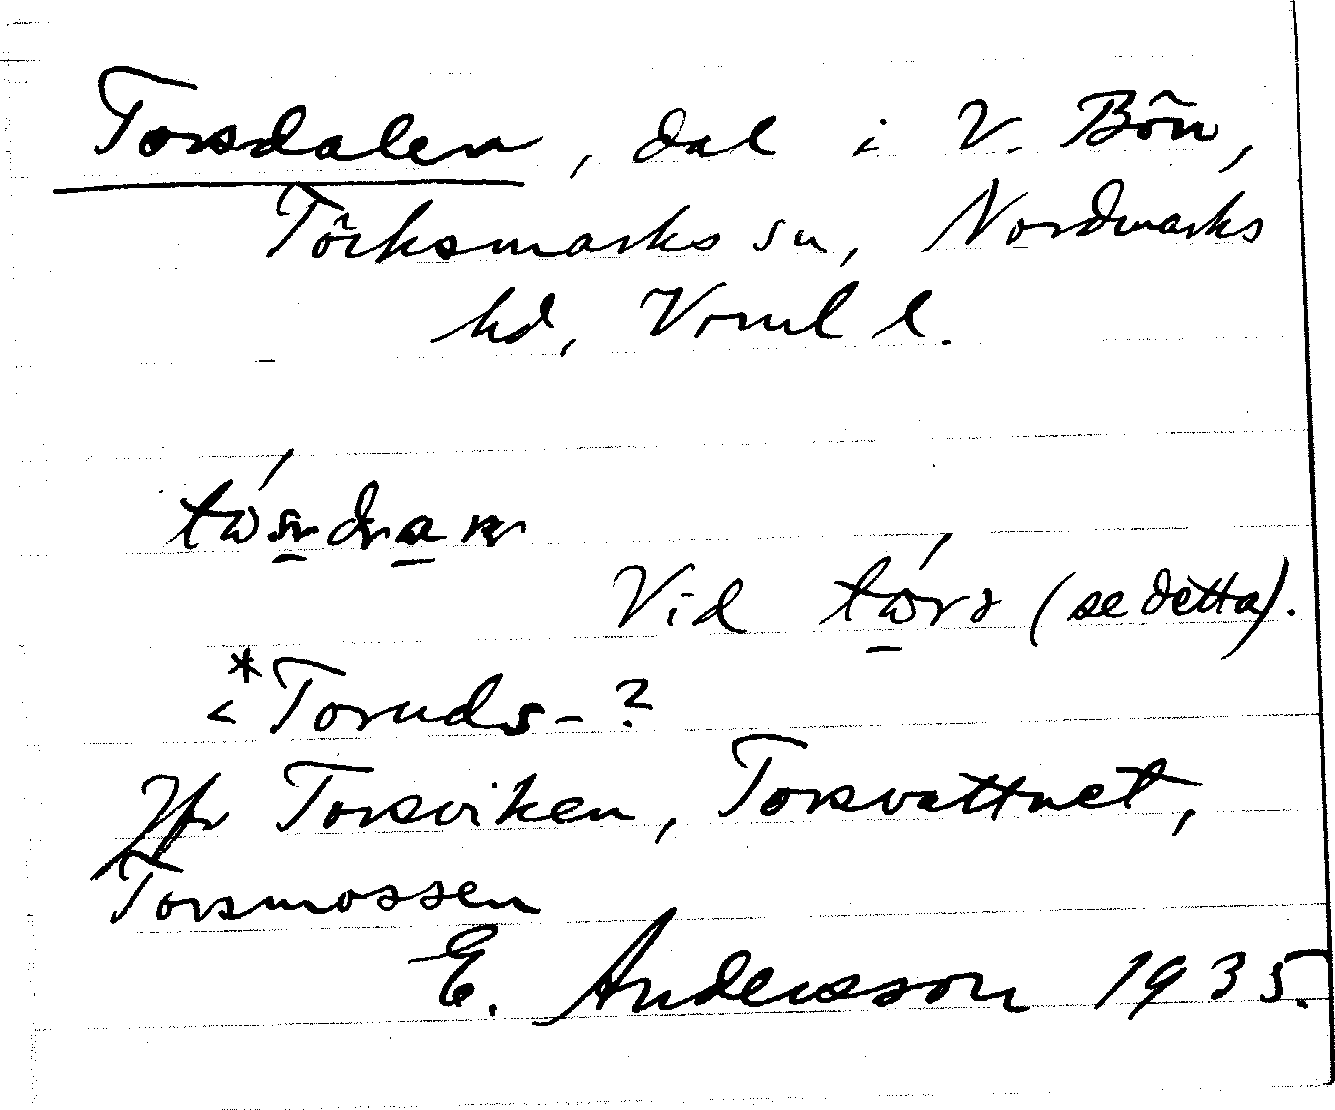 Torsdalen, dal i V. Bön,
Töcksmarks sn, Nordmarks
hd, Vrml l.
Vid (se detta).
<*Toruds-?
Jfr Torsviken, Torsvattnet,
Torsmossen
E. Andersson 1935.